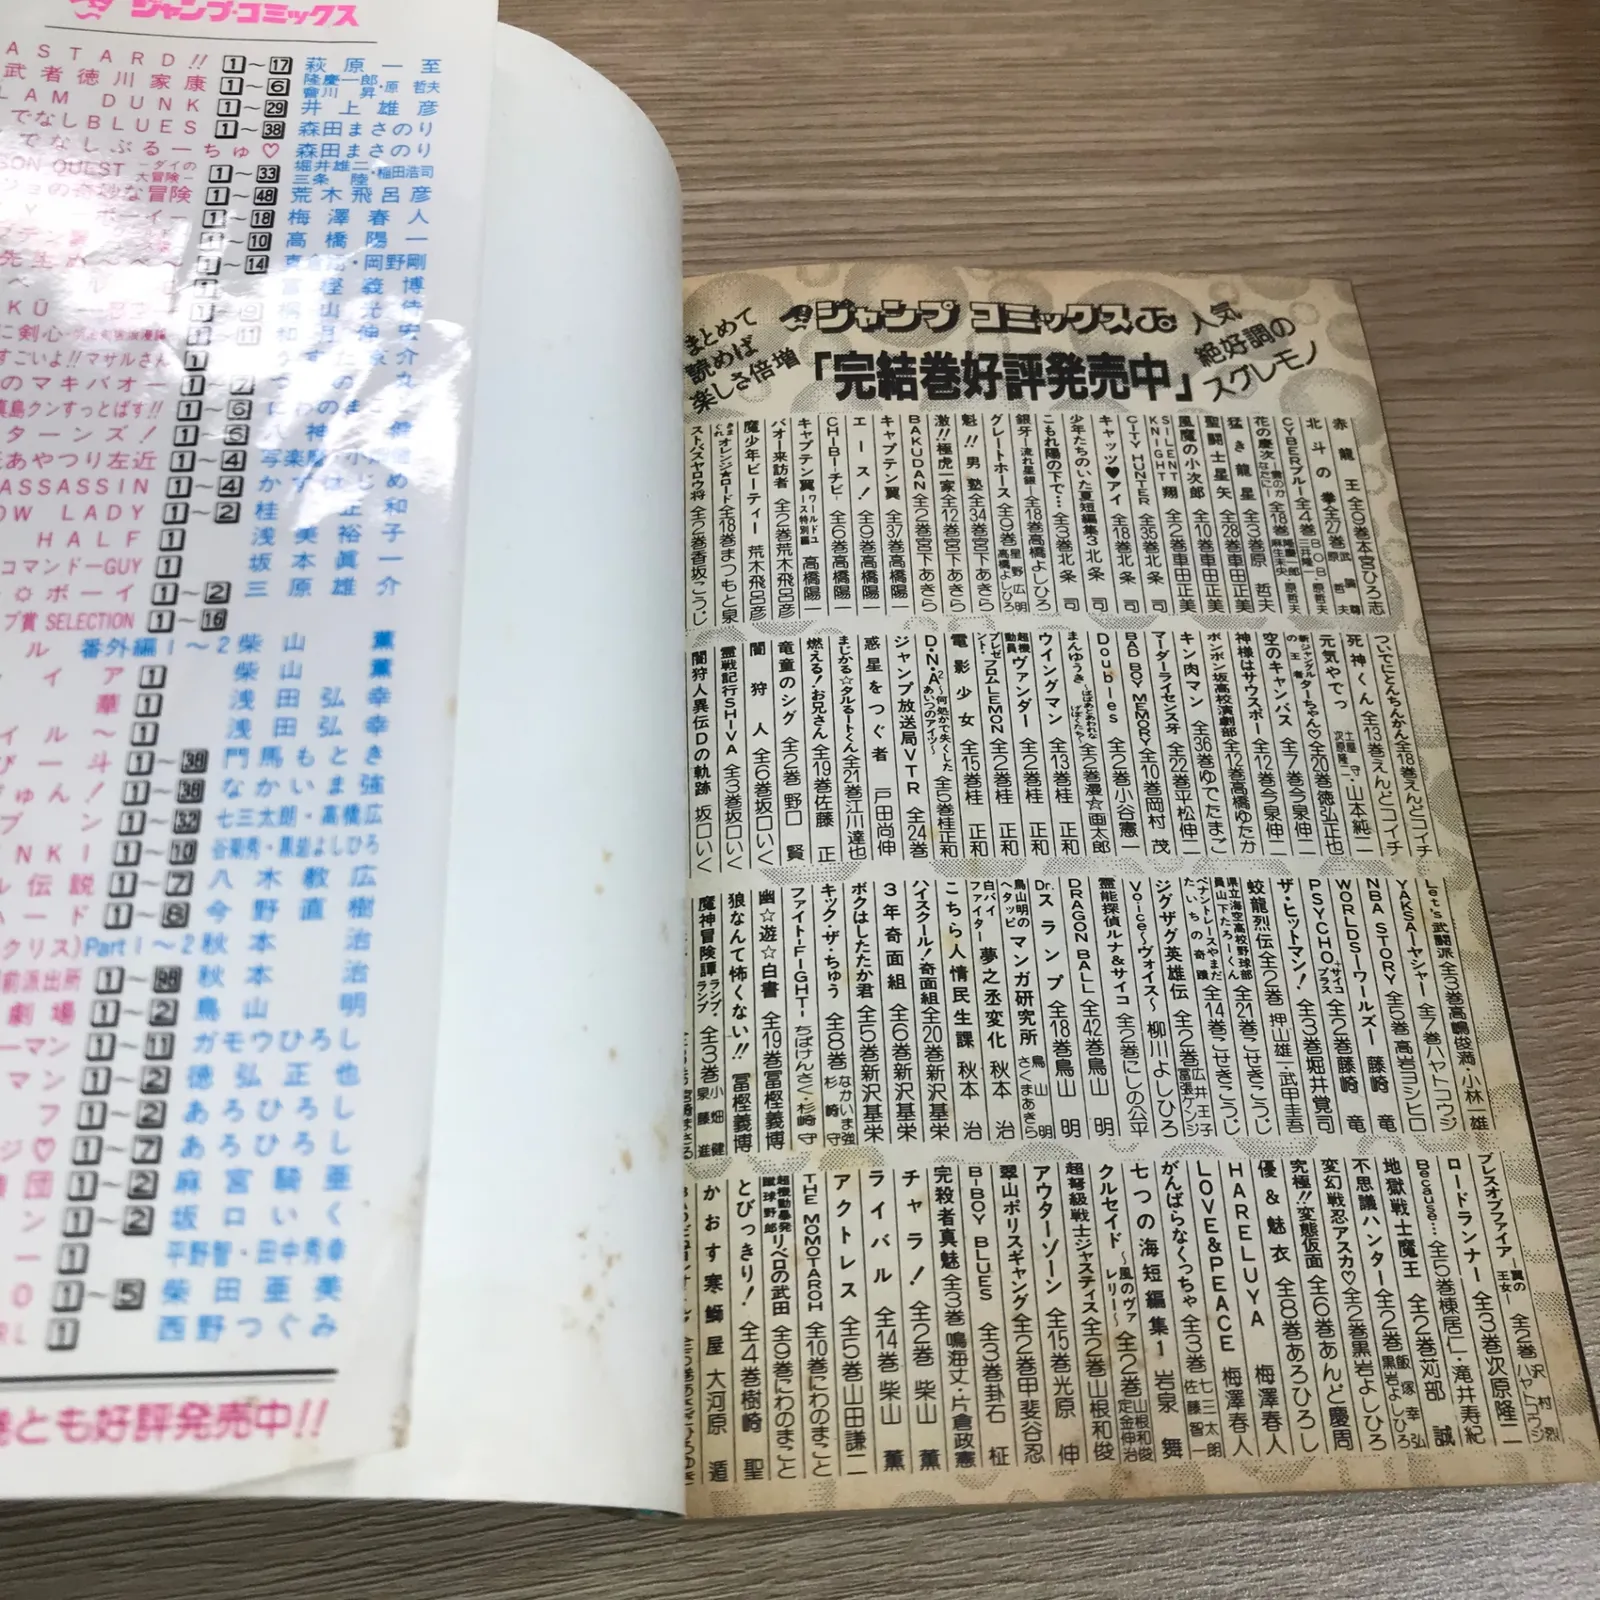 ジャンプ・コミックス
ASTARD!! 1〜17 萩原一至
武者徳川家康 1〜6 隆慶一郎・會川昇・原哲夫
LAM DUNK 1〜29 井上雄彦
でなしBLUES 1〜38 森田まさのり
でなしぶるーちゅ♡ 森田まさのり
SON QUEST −ダイの大冒険− 1〜33 堀井雄二・三条陸・稲田浩司
ジョの奇妙な冒険 1〜48 荒木飛呂彦
ボーイ− 1〜18 梅澤春人
1〜10 高橋陽一
先生ぬ〜べ〜 1〜14 真倉翔・岡野剛
1 冨樫義博
に剣心 1〜11 和月伸宏
すごいよ!!マサルさん 1 うすた京介
のマキバオー 1〜7 つの丸
真島クンすっとばす!! 1〜6 にわのまこと
ターンズ! 1〜6
あやつり左近 1〜4 写楽麿・小畑健
ASSASSIN 1〜4 かずはじめ
OW LADY 1〜2 桂正和
HALF 1 浅美裕子
コマンドーGUY 1 坂本眞一
☆ボーイ 1〜2 三原雄介
プ賞 SELECTION 1〜16
ル 番外編1〜2 柴山薫
イア 1 柴山薫
華 1 浅田弘幸
イル〜 1 浅田弘幸
び一斗 1〜38 門馬もとき
ぎゅん! 1〜38 なかいま強
ブン 1〜32 七三太朗・高橋広
NKI 1〜10 谷菊秀・黒岩よしひろ
ル伝説 1〜7 八木教広
ハード 1〜8 今野直樹
クリス)Part 1〜2 秋本治
前派出所 1〜98 秋本治
劇場 1〜2 鳥山明
ーマン 1〜11 ガモウひろし
マン 1〜2 徳弘正也
フ 1〜2 あろひろし
ジ♡ 1〜7 あろひろし
団 1〜2 麻宮騎亜
ン 1〜2 坂口いく
ー 1 平野智・田中秀幸
O 1〜5 柴田亜美
RL 1 西野つぐみ
巻とも好評発売中!!
まとめて読めば楽しさ倍増
ジャンプ コミックス
人気絶好調のスグレモノ
「完結巻好評発売中」
赤龍王 全9巻 本宮ひろ志
北斗の拳 全27巻 武論尊 原哲夫
CYBERブルー 全4巻 BOB 三井隆一 原哲夫
花の慶次 −雲のかなたに− 全18巻 隆慶一郎 麻生未央 原哲夫
猛き龍星 全3巻 原哲夫
聖闘士星矢 全28巻 車田正美
風魔の小次郎 全10巻 車田正美
SILENT KNIGHT翔 全2巻 車田正美
CITY HUNTER 全35巻 北条司
キャッツ♥アイ 全18巻 北条司
少年たちのいた夏 短編集3 北条司
こもれ陽の下で… 全3巻 北条司
銀牙−流れ星 銀− 全18巻 高橋よしひろ
グレートホース 全9巻 星野広明 高橋よしひろ
魁!!男塾 全34巻 宮下あきら
激!!極虎一家 全12巻 宮下あきら
BAKUDAN 全2巻 宮下あきら
キャプテン翼 全37巻 高橋陽一
エース! 全9巻 高橋陽一
CHIBI−チビ− 全6巻 高橋陽一
キャプテン翼 ワールドユース特別編 高橋陽一
バオー来訪者 全2巻 荒木飛呂彦
魔少年ビーティー 荒木飛呂彦
きまぐれオレンジ★ロード 全18巻 まつもと泉
ストパズヤロウ将 全2巻 香坂こうじ
ついでにとんちんかん 全18巻 えんどコイチ
死神くん 全13巻 えんどコイチ
元気やでっ 土屋守・山本純二 次原隆二
新ジャングルの王者ターちゃん♡ 全20巻 徳弘正也
空のキャンバス 全7巻 今泉伸二
神様はサウスポー 全12巻 今泉伸二
ボンボン坂高校演劇部 全12巻 高橋ゆたか
キン肉マン 全36巻 ゆでたまご
マーダーライセンス牙 全22巻 平松伸二
BAD BOY MEMORY 全10巻 岡村茂
Doubles 全2巻 小谷憲一
まんゆうき 〜ばばあとあわれなげぼくたち〜 全2巻 漫☆画太郎
ウイングマン 全13巻 桂正和
超機動員ヴァンダー 全2巻 桂正和
プレゼント・フロムLEMON 全2巻 桂正和
電影少女 全15巻 桂正和
D・N・A² 〜何処かで失くしたあいつのアイツ〜 全5巻 桂正和
ジャンプ放送局VTR 全24巻
惑星をつぐ者 戸田尚伸
まじかる☆タルるートくん 全21巻 江川達也
燃える!お兄さん 全19巻 佐藤正
竜童のシグ 全2巻 野口賢
闇狩人 全6巻 坂口いく
霊戦記行SHIVA 全3巻 坂口いく
闇狩人異伝Dの軌跡 坂口いく
Let's武闘派 全3巻 高嶋俊満・小林一雄
YAKSA−ヤシャ− 全7巻 ハヤトコウジ
NBA STORY 全5巻 高岩ヨシヒロ
WORLDS−ワールズ− 藤崎竜
PSYCHO+ サイコプラス 全2巻 藤崎竜
ザ・ヒットマン! 全3巻 堀井覚司
蛟龍烈伝 全2巻 押山雄一・武甲圭吾
県立海空高校野球部員山下たろーくん 全21巻 こせきこうじ
ペナントレースやまだたいちの奇蹟 全14巻 こせきこうじ
ジグザグ英雄伝 全2巻 広井王子 冨張ケンジ
Voice〜ヴォイス〜 柳川よしひろ
霊能探偵ルナ&サイコ 全2巻 にしの公平
DRAGON BALL 全42巻 鳥山明
Dr.スランプ 全18巻 鳥山明
鳥山明のヘタッピマンガ研究所 鳥山明 さくまあきら
白バイファイター 夢之丞変化 秋本治
こちら人情民生課 秋本治
ハイスクール!奇面組 全20巻 新沢基栄
3年奇面組 全6巻 新沢基栄
ボクはしたたか君 全5巻 新沢基栄
キック・ザ・ちゅう 全8巻 なかいま強
ファイト−FIGHT− ちばけんさく・杉崎守
幽☆遊☆白書 全19巻 冨樫義博
狼なんて怖くない!! 冨樫義博
魔神冒険譚ランプ・ランプ 全3巻 小畑健 泉藤進
ブレスオブファイア−翼の王女− 全2巻 沢村烈 ハヤトコウジ
ロードランナー 全3巻 次原隆二
Because… 全5巻 棟居仁・滝井寿紀
地獄戦士魔王 全2巻 刈部誠
不思議ハンター 全2巻 飯塚幸弘 黒岩よしひろ
変幻戦忍アスカ♡ 全2巻 黒岩よしひろ
究極!!変態仮面 全6巻 あんど慶周
優&魅衣 全8巻 あろひろし
HARELUYA 梅澤春人
LOVE&PEACE 梅澤春人
がんばらなくっちゃ 全3巻 七三太朗 佐藤智一
七つの海 短編集1 岩泉舞
クルセイド 〜風のヴァレリー〜 全2巻 山根和俊 定金伸治
超弩級戦士ジャスティス 全2巻 山根和俊
アウターゾーン 全15巻 光原伸
翠山ポリスギャング 全2巻 甲斐谷忍
B−BOY BLUES 全3巻 卦石柾
完殺者真魅 全3巻 鳴海丈・片倉政憲
チャラ! 全2巻 柴山薫
ライバル 全14巻 柴山薫
アクトレス 全5巻 山田謙二
THE MOMOTAROH 全10巻 にわのまこと
超機動暴発蹴球野郎リベロの武田 全9巻 にわのまこと
とびっきり! 全4巻 樹崎聖
かおす寒鰤屋 大河原遁